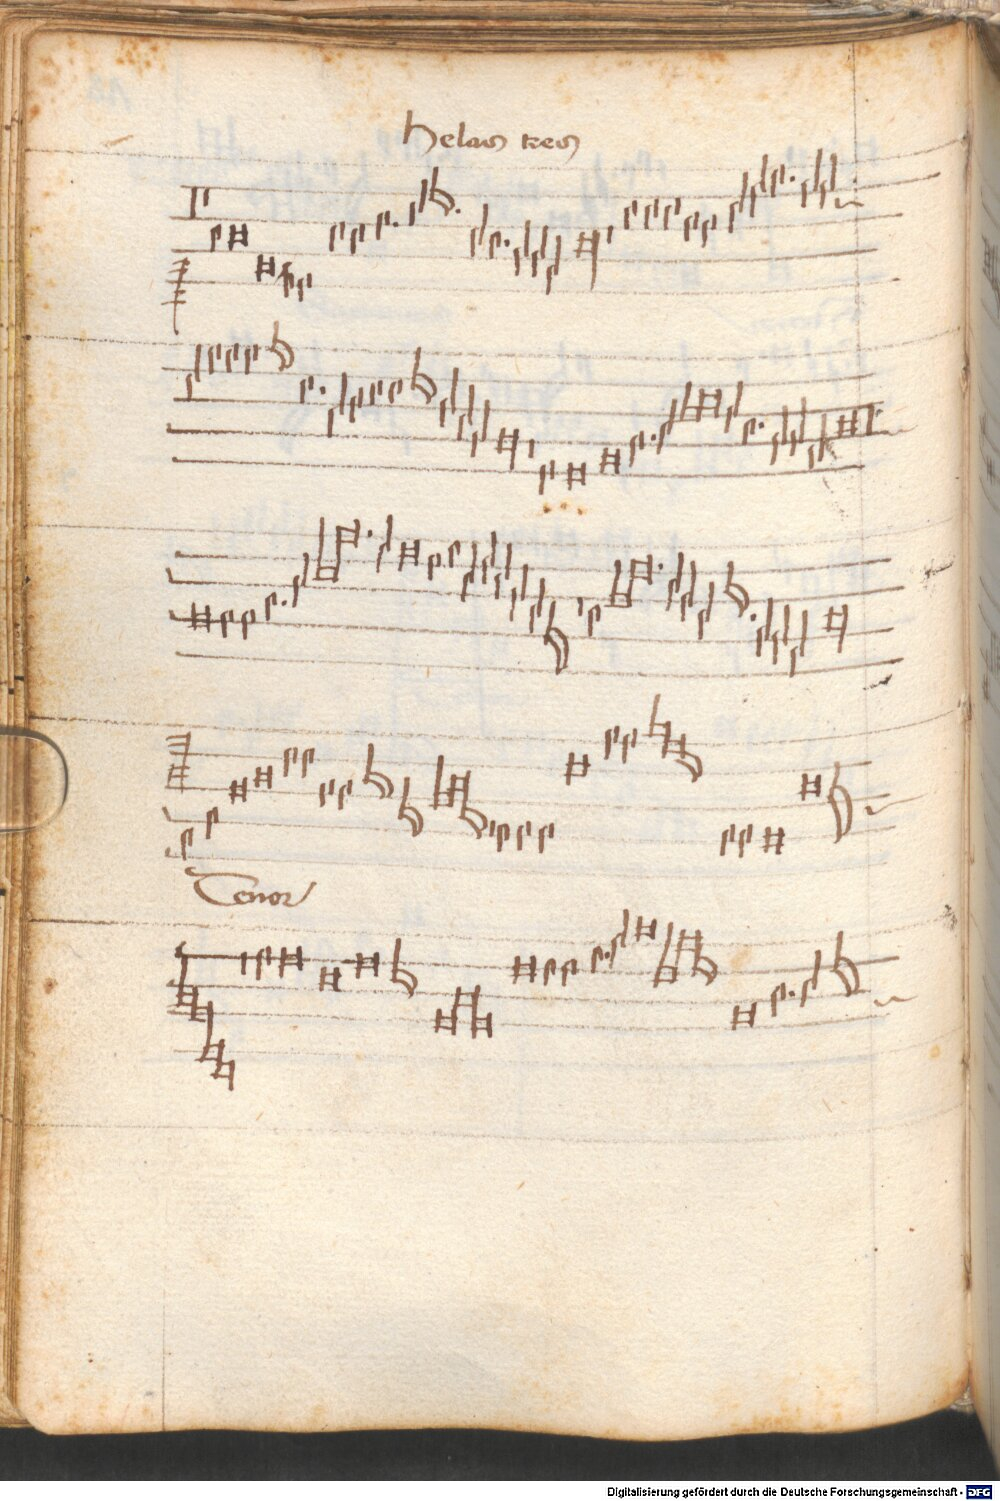 helas
Tenor
Digitalisierung gefördert durch die Deutsche Forschungsgemeinschaft - DFG